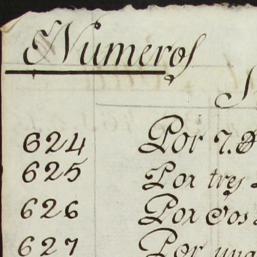 Numeros
624 Por 7.
625 Por tres
626 Por dos
627 Por una